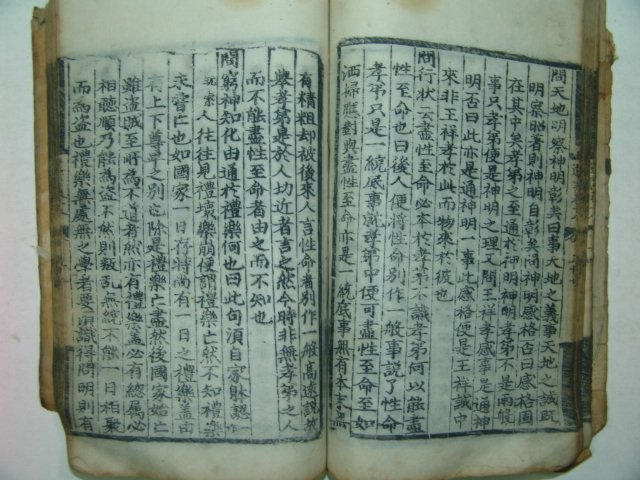 問天地明察神明彰矣曰事天地之義事天地之誠既
明察昭著則神明自彰矣問神明感格否曰感格固
在其中矣孝弟之至通於神明神明孝弟不是兩般
事只孝弟便是神明之理又問王祥孝感事是通神
明否曰此亦是通神明一事此感格便是王祥誠中
來非王祥孝於此而物來於彼也
問行狀云盡性至命必本於孝弟不識孝弟何以能盡
性至命也曰後人便將性命別作一般事說了性命
孝弟只是一統底事就孝弟中便可盡性至命至如
洒掃應對與盡性至命亦是一統底事無有本末無
有精粗却被後來人言性命者別作一般高遠說故
舉孝弟是於人切近者言之然今時非無孝弟之人
而不能盡性至命者由之而不知也
問窮神知化由通於禮樂何也曰此句須自家體認一作
玩索人往往見禮壞樂崩便謂禮樂亡然不知禮樂
未嘗亡也如國家一日存時尚有一日之禮樂蓋由
有上下尊卑之別也除是禮樂亡盡然後國家始亡
雖盜賊至所爲不道者然亦有禮樂蓋必有總屬必
相聽順乃能爲盜不然則叛亂無統不能一日相聚
而爲盜也禮樂無處無之學者要須識得問明則有